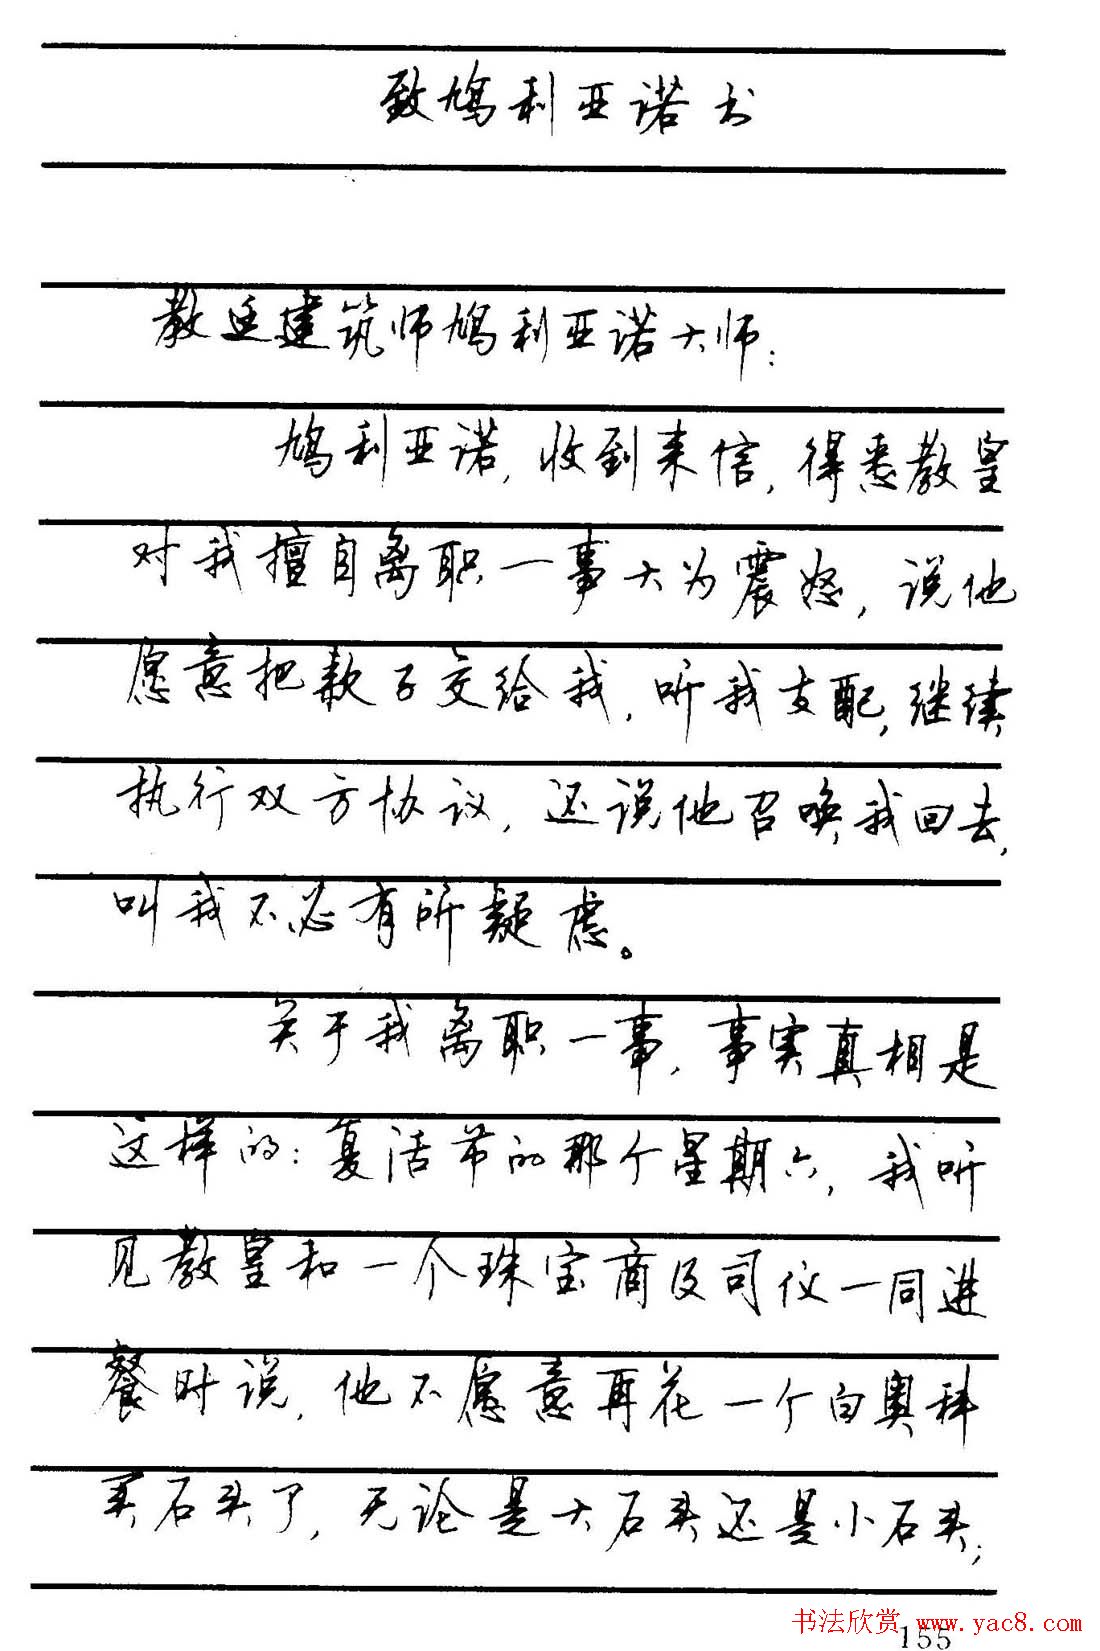 致鸠利亚诺书
教廷建筑师鸠利亚诺大师：
鸠利亚诺，收到来信，得悉教皇
对我擅自离职一事大为震怒，说他
愿意把款子交给我，听我支配，继续
执行双方协议，还说他召唤我回去，
叫我不必有所疑虑。
关于我离职一事，事实真相是
这样的：复活节的那个星期六，我听
见教皇和一个珠宝商及司仪一同进
餐时说，他不愿意再花一个白奥科
买石头了，无论是大石头还是小石头；
书法欣赏 www.yac8.com
155